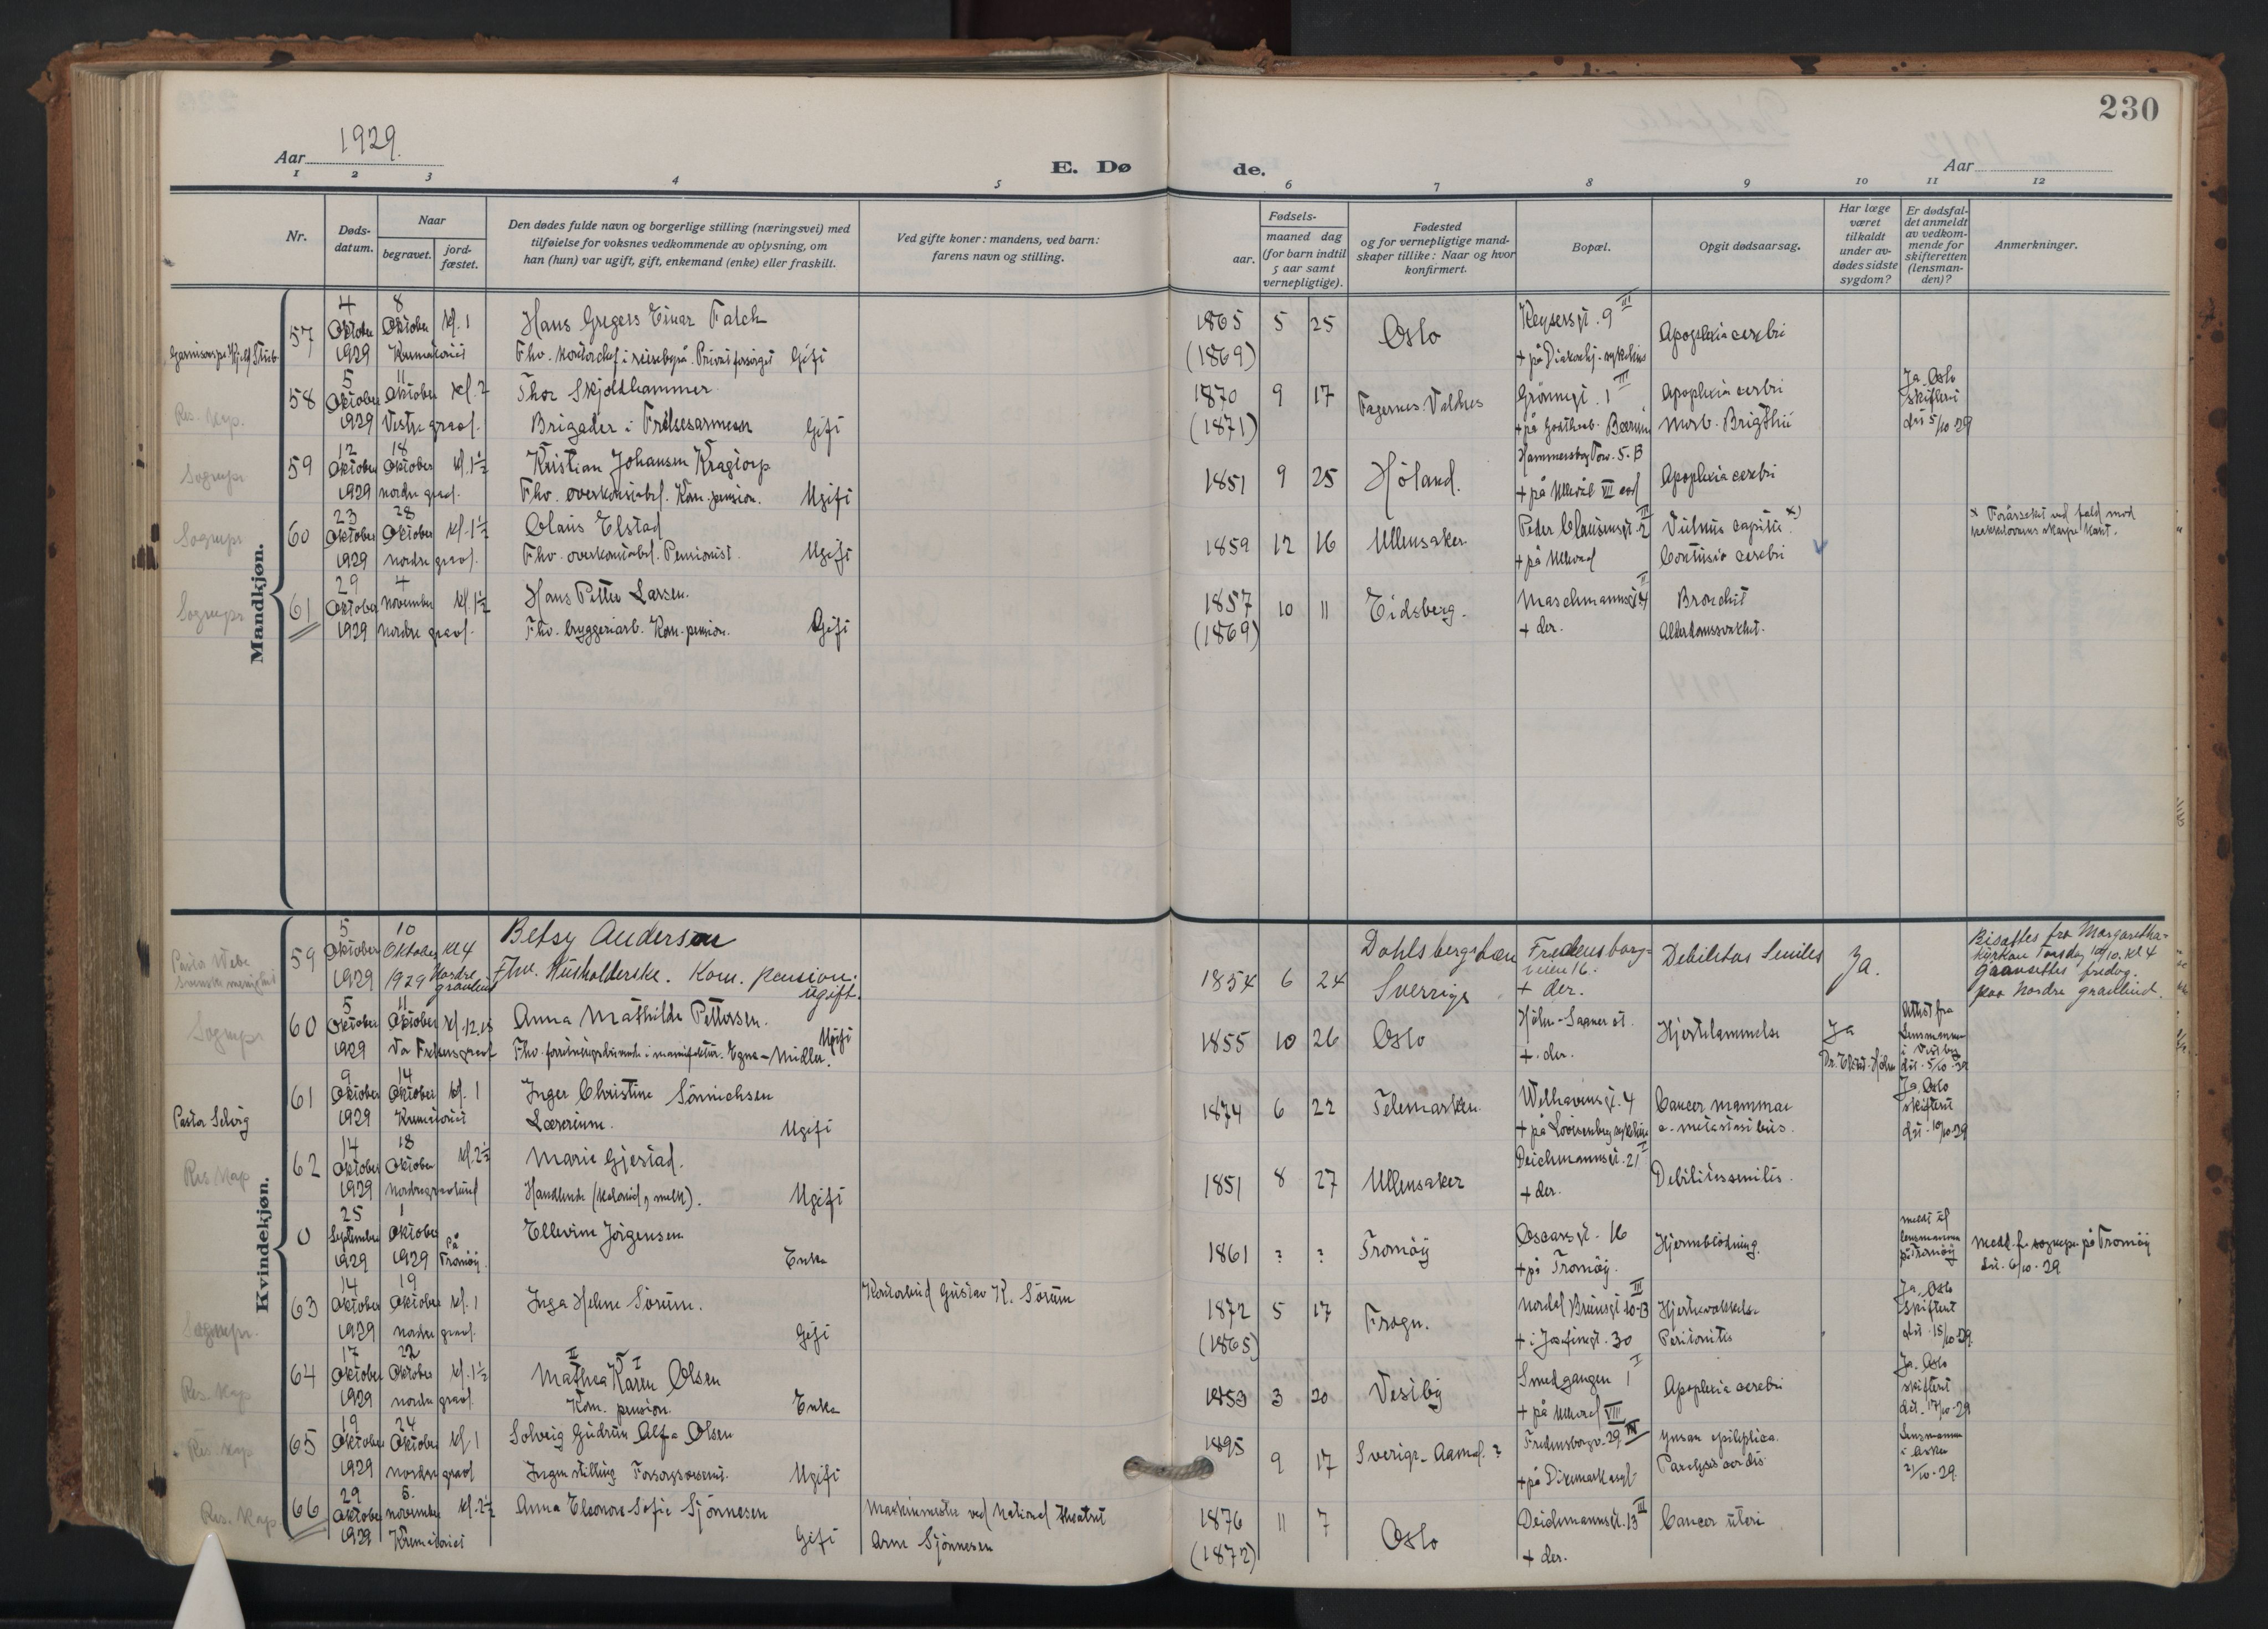 230
Aar 1929.
E. Dø de.
Aar
1 2 3 4 5 6 7 8 9 10 11 12
Nr.
Døds-
datum.
Naar
begravet.
jord-
fæstet.
Den dødes fulde navn og borgerlige stilling (næringsvei) med
tilføielse for voksnes vedkommende av oplysning, om
han (hun) var ugift, gift, enkemand (enke) eller fraskilt.
Ved gifte koner: mandens, ved barn:
farens navn og stilling.
Fødsels-
aar.
maaned dag
(for barn indtil
5 aar samt
vernepligtige).
Fødested
og for vernepligtige mand-
skaper tillike: Naar og hvor
konfirmert.
Bopæl.
Opgit dødsaarsag.
Har læge
været
tilkaldt
under av-
dødes sidste
sygdom?
Er dødsfal-
det anmeldt
av vedkom-
mende for
skifteretten
(lensman-
den)?
Anmerkninger.
Mandkjøn.
57
4 Oktober 1929
8 Oktober kl. 1
Krematoriet
Hans Gregers Einar Falch
Fhv. kontorchef i reisebyrå. Privat forsørget Gift
1865 5 25
(1869)
Oslo
Keysersgt. 9 III
Apoplexia cerebri
Res. Kap.
58
5 Oktober 1929
11 Oktober kl. 2
Vestre gravl.
Thor Skjoldhammer
Brigader i Frelsesarmeen Gift
1870 9 17
(1871)
Fagernes. Valdres
Grønnegt. 1 III
Apoplexia cerebri
Ja. Oslo
skifterett
dat 5/10 29
Sogneprs
59
12 Oktober 1929
18 Oktober kl. 1½
nordre gravl.
Kristian Johansen Kragtorp
Fhv. overkonstabel. Kom. pension. Ugift
1851 9 25
Höland.
Hammersborg Torv. 5. B
+ på Ullevål VII avd
Apoplexia cerebri
Sogneprs
60
23 Oktober 1929
28 Oktober kl. 1½
nordre gravl.
Olaus Elstad
Fhv. overkonstabel. Pensionist. Ugift
1859 12 16
Ullensaker
Peder Clausensgt. 2 III
+ på Ullevål
Vulnus capitis x)
Contusio cerebri
x Forårsaket ved fald mod
Sogneprs
61
29 Oktober 1929
4 november kl. 1½
nordre gravl.
Hans Petter Larsen.
Fhv. bryggeriarb. Kom. pension. Gift
1857 10 11
(1869)
Eidsberg.
+ der.
Bronchit
Alderdomssvakhet.
Kvindekjøn.
59
5 Oktober 1929
10 Oktober 1929 kl 4
Nordre gravlund
Betsy Anderson
Fhv. Husholderske. Kom. pension.
ugift.
1854 6 24
Sverrige
Fredensborg-
veien 16.
+ der.
Debilitas Seniles
Ja.
Bisattes fra Margaretha-
kyrkan Torsdag 10/10. kl 4
Gravsettes fredag.
paa Nordre gravlund.
Sogneprs
60
5 Oktober 1929
11 Oktober kl. 12.15
Vor Frelsers gravl
Anna Mathilde Pettersen.
Ugift
1855 10 26
Oslo
+ der.
Hjertelammelse
Ja
Attest fra
Lensmannen
dat. 5/10 29
Pastor Selvig
61
9 Oktober 1929
14 Oktober kl. 1
Krematoriet
Inger Christine Sönnichsen
Lærerinne. Ugift
1874 6 22
Telemarken.
Welhavensgt. 4
+ på Lovisenberg sykehus
Cancer mammae
c. metastasibus.
Ja. Oslo
skifterett
dat. 10/10-29
Res Kap
62
14 Oktober 1929
18 Oktober kl. 2½
nordre gravlund
Marie Gjestad.
Handlende (kolonial, melk). Ugift
1851 8 27
Ullensaker
Deichmannsgt. 21 I
+ der.
Debilitas senilis.
0
25 September 1929
1 Oktober 1929
på Tromöy
Ellevine Jörgensen
Enke
1861 ? ?
Tromöy
Oscarsgt. 16
+ på Tromöy.
Hjerneblödning.
meldt til
lensmannen
på Tromöy
Medd. f. sogneprs. på Tromöy
dat. 6/10 - 29
Sogneprs.
63
14 Oktober 1929
19 Oktober kl. 1
nordre gravl.
Inga Helene Sörum.
Gift
Kontorbud Gustav K. Sörum
1872 5 17
(1865)
Frogn.
Nordal Brunsgt 10-B III
+ i Josefinegt. 30
Peritonitis
Ja. Oslo
skifterett
dat. 15/10-29.
Res. Kap
64
17 Oktober 1929
22 Oktober kl. 1½
nordre gravl.
Mathea Karen Olsen
Kom. pension. Enke
1853 3 20
Vestby
Smedgangen 1 I
+ på Ullevål VIII
Apoplexia cerebri
Ja. Oslo
skifterett
dat. 17/10-29
Res. Kap
65
19 Oktober 1929
24 Oktober kl. 1
nordre gravl
Solveig Gudrun Alfa Olsen
Ingen stilling Forsorgsvesenet. Ugift
1895 9 17
Fredensborgv. 29 IV
+ på Dikemark asyl
Paralysis cordis
Lensmannen
i Asker
21/10-29.
Res. Kap
66
29 Oktober 1929
5. november kl. 2½
Krematoriet
Anna Eleonore Sofie Sjönnesen
Gift
Maskinmester ved National theatret
Arne Sjönnesen
1876 11 7
(1872)
Oslo
Deichmannsgt. 13 III
+ der.
Cancer uteri